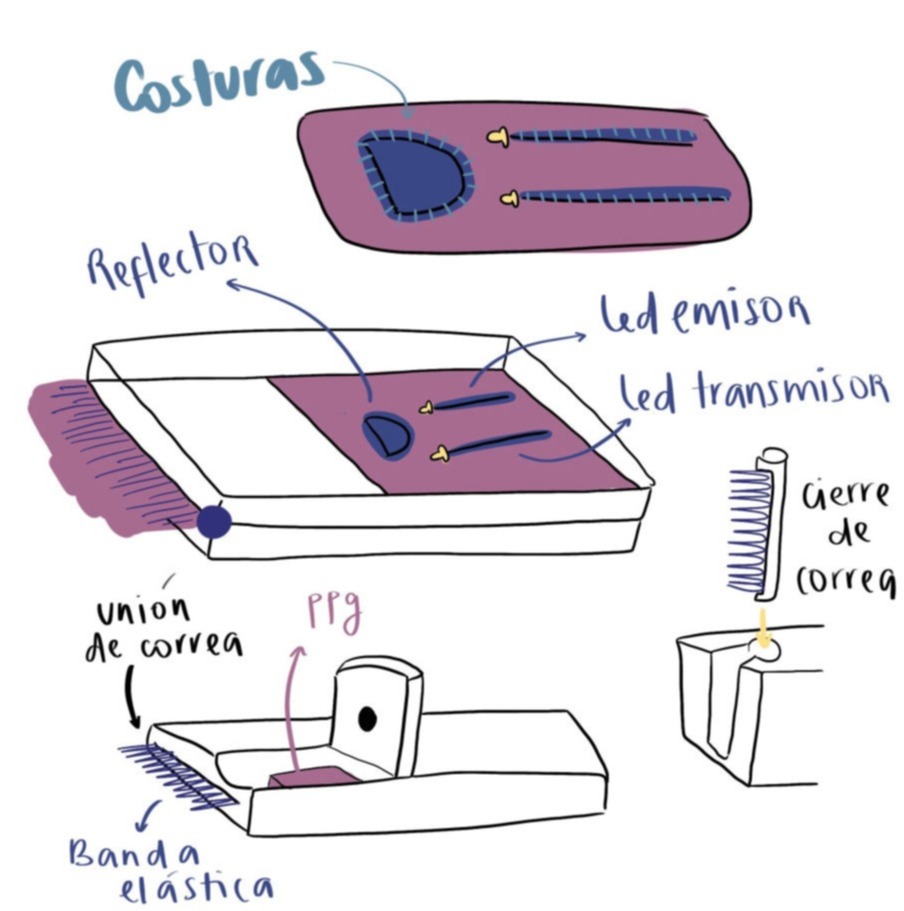 Costuras
Reflector
led emisor
led transmisor
cierre
de
correa
unión
de correa
ppg
Banda
elástica